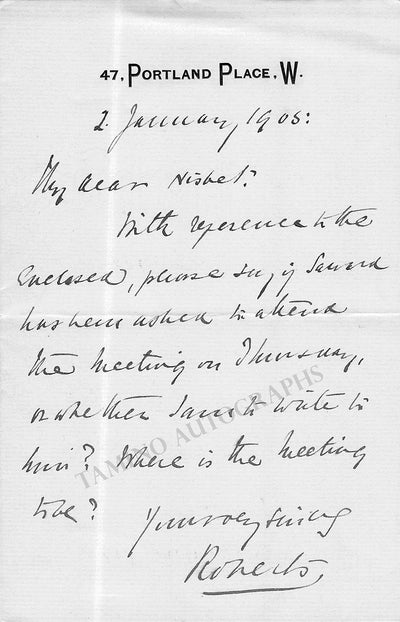 47, PORTLAND PLACE, W.
2. January, 1905:
My dear Nisbet?
With reference to the
enclosed, please say if
has been asked to attend
the meeting on Thursday,
or whether I am to write to
him? Where is the meeting
to be?
Yours very sincly
Roberts
TAMINO AUTOGRAPHS